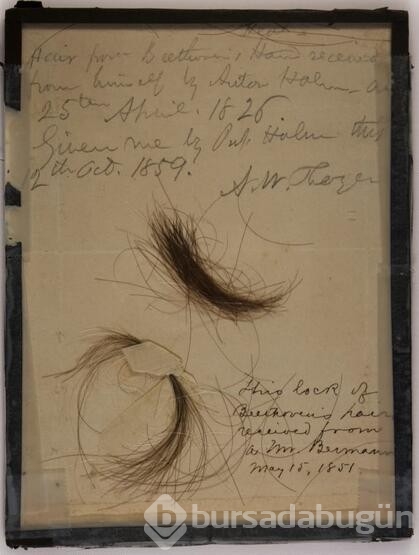 Hair from Beethoven's Head received
from himself by Anton Halm, on
25ten April. 1826.
Given me by Prof. Halm this
12th Oct. 1859.
A. W. Thayer
This lock of
Beethoven's hair
received from
a Mr. Bermann
May 15, 1851
bursadabugün